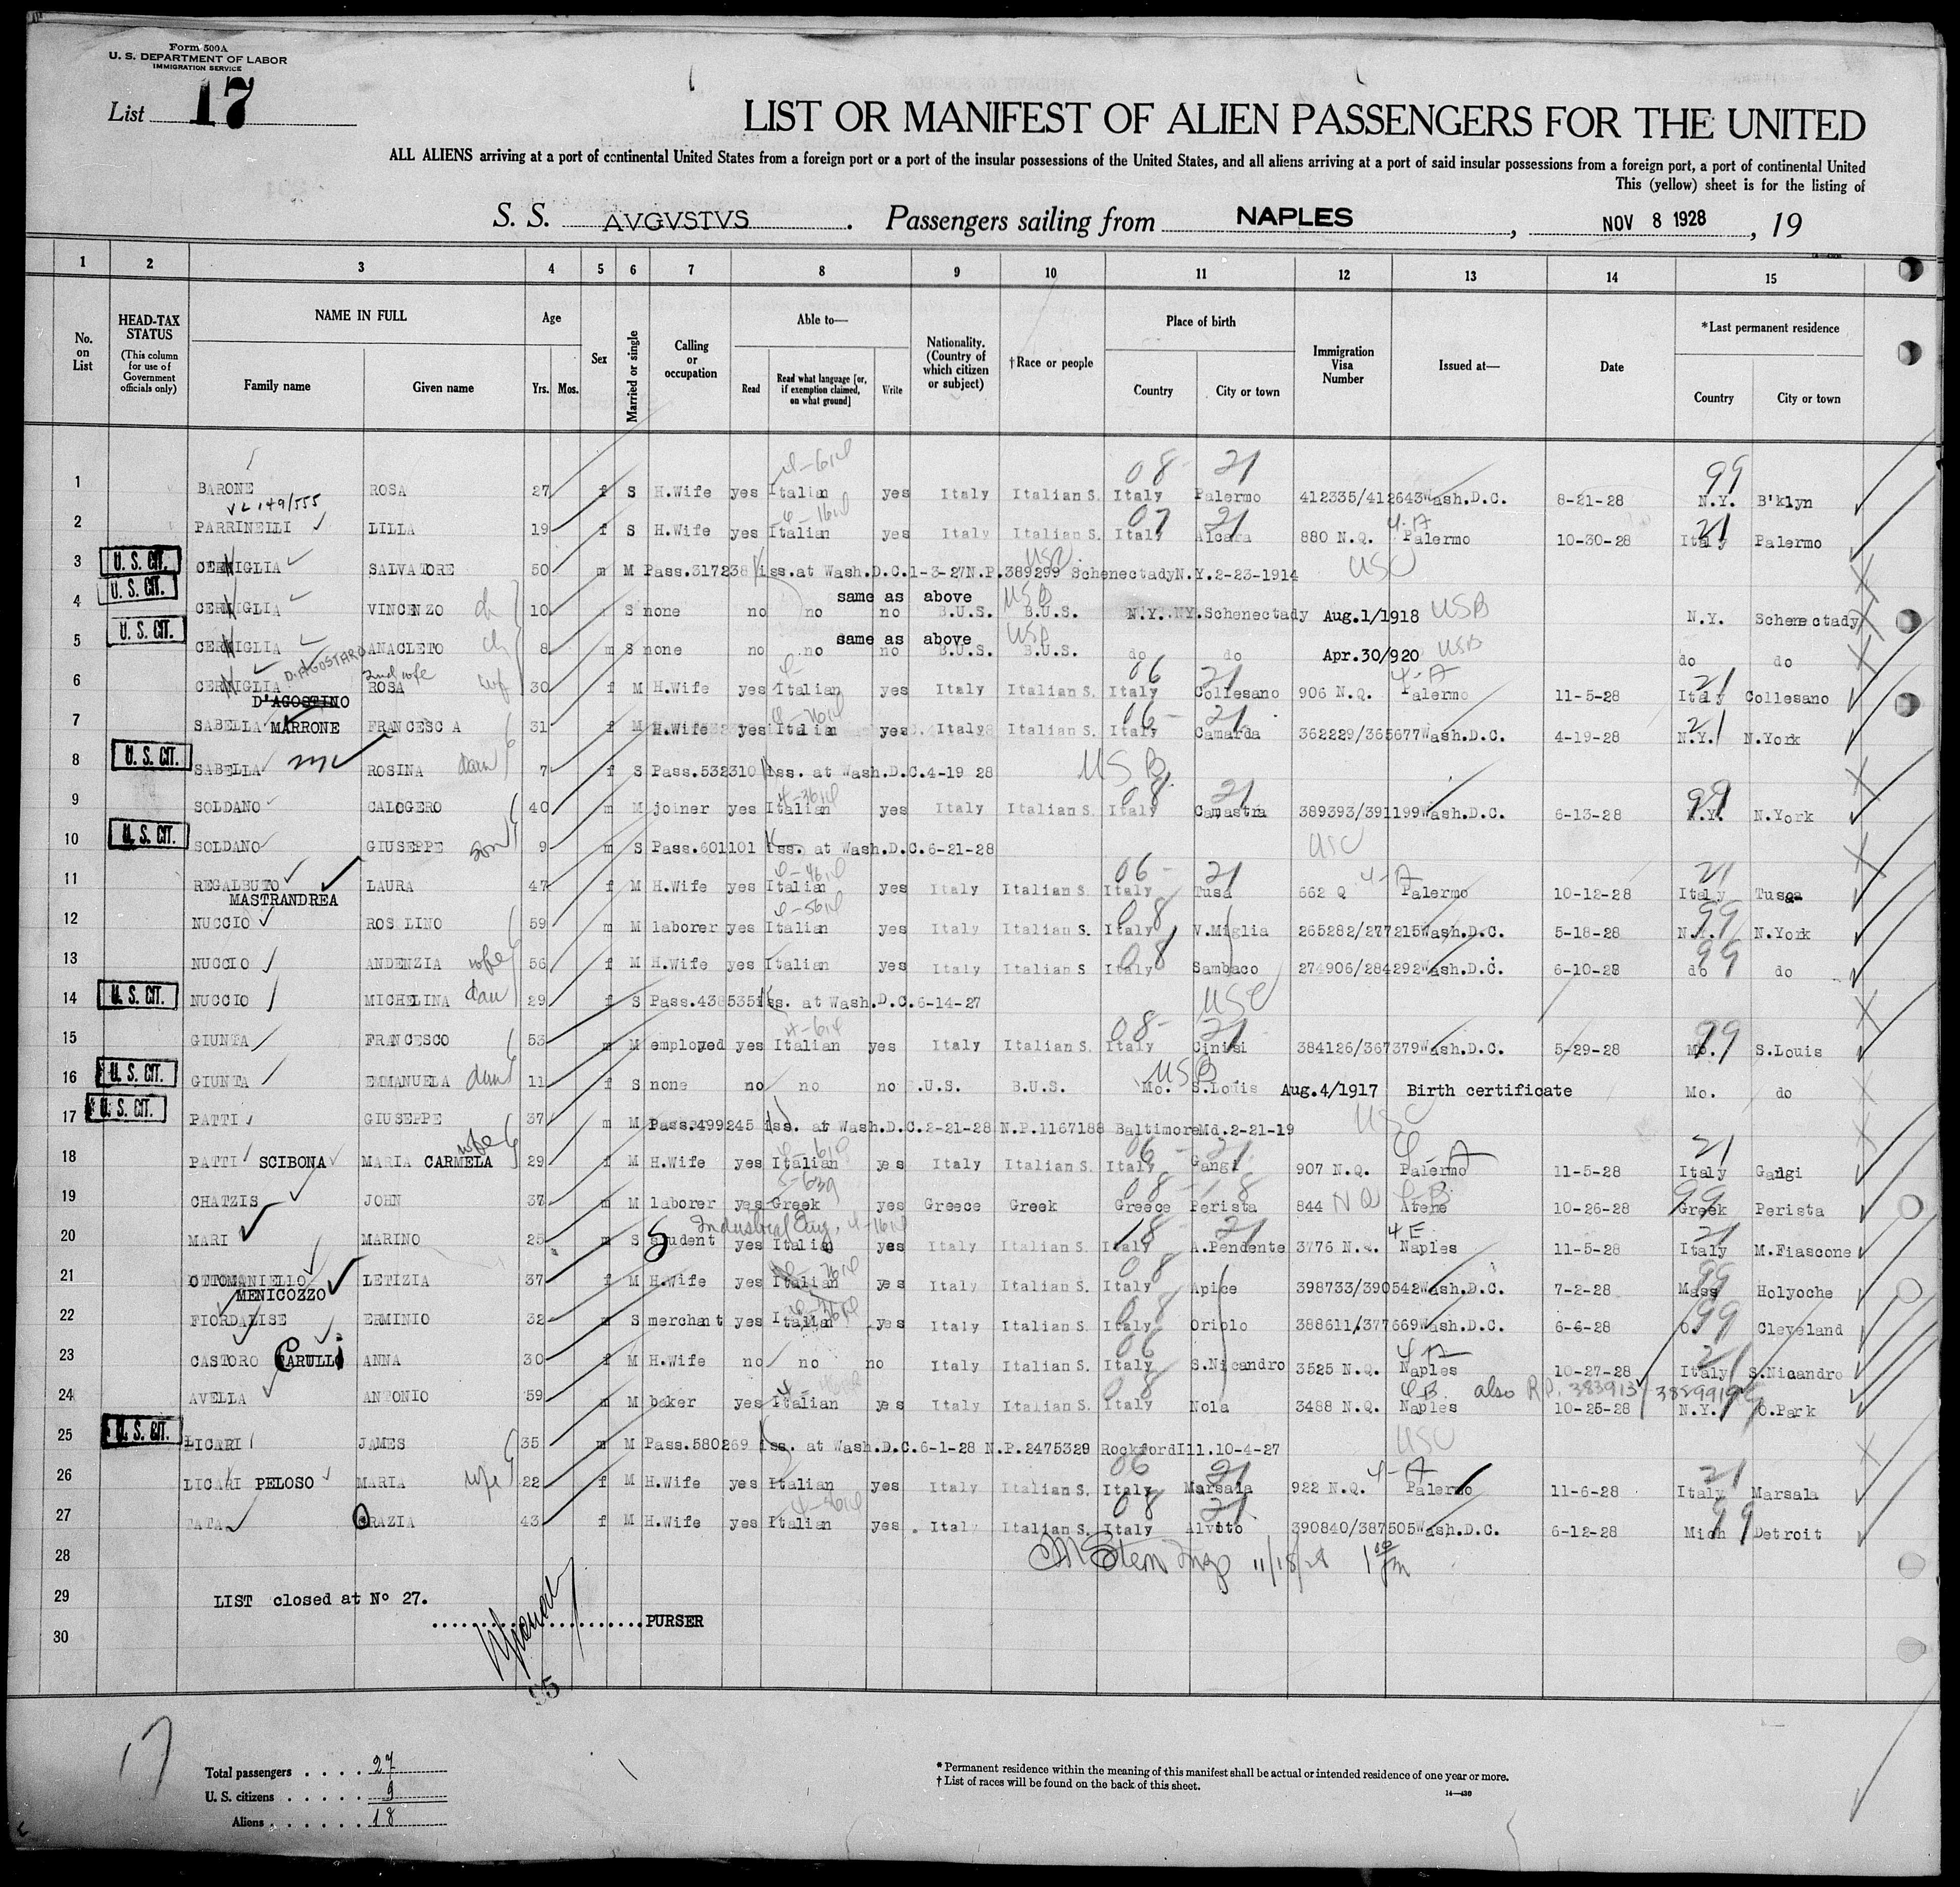 Form 500A
U. S. DEPARTMENT OF LABOR
IMMIGRATION SERVICE
List 17
LIST OR MANIFEST OF ALIEN PASSENGERS FOR THE UNITED
ALL ALIENS arriving at a port of continental United States from a foreign port or a port of the insular possessions of the United States, and all aliens arriving at a port of said insular possessions from a foreign port, a port of continental United
This (yellow) sheet is for the listing of
S. S. AVGVSTVS . Passengers sailing from NAPLES , NOV 8 1928 , 19
1 2 3 4 5 6 7 8 9 10 11 12 13 14 15
No. on List
HEAD-TAX STATUS (This column for use of Government officials only)
NAME IN FULL
Family name Given name
Age
Yrs. Mos.
Sex
Married or single
Calling or occupation
Able to—
Read Read what language [or, if exemption claimed, on what ground] Write
Nationality. (Country of which citizen or subject)
†Race or people
Place of birth
Country City or town
Immigration Visa Number
Issued at—
Date
*Last permanent residence
Country City or town
1 BARONE ROSA 27 f S H.Wife yes Italian yes Italy Italian S. Italy Palermo 412335/412643 Wash.D.C. 8-21-28 N.Y. B'klyn
2 PARRINELLI LILLA 19 f S H.Wife yes Italian yes Italy Italian S. Italy Alcara 880 N.Q. Palermo 10-30-28 Italy Palermo
3 U. S. CIT. CERNIGLIA SALVATORE 50 m M Pass.317238 iss.at Wash.D.C.1-3-27 N.P.389299 Schenectady N.Y.2-23-1914 USC
same as above
4 U. S. CIT. CERNIGLIA VINCENZO ch 10 S none no no no B.U.S. B.U.S. N.Y. NY.Schenectady Aug.1/1918 USB N.Y. Schenectady
same as above
5 U. S. CIT. CERNIGLIA ANACLETO ch 8 m S none no no no B.U.S. B.U.S. do do Apr.30/920 USB do do
6 CERNIGLIA D'AGOSTINO D.AGOSTARO ROSA 2nd wife wif 30 f M H.Wife yes Italian yes Italy Italian S. Italy Collesano 906 N.Q. Palermo 11-5-28 Italy Collesano
7 SABELLA MARRONE FRANCESCA 31 f M H.Wife yes Italian yes Italy Italian S. Italy Camarda 362229/365677 Wash.D.C. 4-19-28 N.Y. N.York
8 U. S. CIT. SABELLA ROSINA dau 7 f S Pass.532310 iss. at Wash.D.C.4-19 28 USB
9 SOLDANO CALOGERO 40 m M joiner yes Italian yes Italy Italian S. Italy Camastra 389393/391199 Wash.D.C. 6-13-28 N.Y. N.York
10 U. S. CIT. SOLDANO GIUSEPPE son 9 m S Pass.601101 iss. at Wash.D.C.6-21-28 USC
11 REGALBUTO MASTRANDREA LAURA 47 f M H.Wife yes Italian yes Italy Italian S. Italy Tusa 662 Q Palermo 10-12-28 Italy Tusa
12 NUCCIO ROSOLINO 59 m M laborer yes Italian yes Italy Italian S. Italy V.Miglia 265282/277215 Wash.D.C. 5-18-28 N.Y. N.York
13 NUCCIO ANDENZIA wife 56 f M H.Wife yes Italian yes Italy Italian S Italy Sambaco 274906/284292 Wash.D.C. 6-10-28 do do
14 U. S. CIT. NUCCIO MICHELINA dau 29 f S Pass.438535 iss. at Wash.D.C.6-14-27 USC
15 GIUNTA FRANCESCO 53 m M employed yes Italian yes Italy Italian S. Italy Cinisi 384126/367379 Wash.D.C. 5-29-28 Mo. S.Louis
16 U. S. CIT. GIUNTA EMMANUELA dau 11 f S none no no no B.U.S. B.U.S. Mo. S.Louis Aug.4/1917 Birth certificate Mo. do
17 U. S. CIT. PATTI GIUSEPPE 37 m M Pass.499245 iss. at Wash.D.C.2-21-28 N.P.1167188 Baltimore Md.2-21-19 USC
18 PATTI SCIBONA MARIA CARMELA wife 29 f M H.Wife yes Italian yes Italy Italian S. Italy Gangi 907 N.Q. Palermo 11-5-28 Italy Gangi
19 CHATZIS JOHN 37 m M laborer yes Greek yes Greece Greek Greece Perista 844 NQ Atene 10-26-28 Greek Perista
20 MARI MARINO 25 m S Student yes Italian yes Italy Italian S. Italy A.Pendente 3776 N.Q. Naples 11-5-28 Italy M.Fiascone
21 OTTOMANIELLO MENICOZZO LETIZIA 37 f M H.Wife yes Italian yes Italy Italian S. Italy Apice 398733/390542 Wash.D.C. 7-2-28 Mass Holyoche
22 FIORDALISE ERMINIO 32 m S merchant yes Italian yes Italy Italian S. Italy Oriolo 388611/377669 Wash.D.C. 6-6-28 O. Cleveland
23 CASTORO CARULLI ANNA 30 f M H.Wife no no no Italy Italian S. Italy S.Nicandro 3525 N.Q. Naples 10-27-28 Italy S.Nicandro
24 AVELLA ANTONIO 59 m M baker yes Italian yes Italy Italian S. Italy Nola 3488 N.Q. Naples also R.P. 383913 10-25-28 N.Y. O.Park
25 U. S. CIT. LICARI JAMES 35 m M Pass.580269 iss. at Wash.D.C.6-1-28 N.P.2475329 Rockford Ill.10-4-27 USC
26 LICARI PELOSO MARIA wife 22 f M H.Wife yes Italian yes Italy Italian S. Italy Marsala 922 N.Q. Palermo 11-6-28 Italy Marsala
27 TATA GRAZIA 43 f M H.Wife yes Italian yes Italy Italian S. Italy Alvito 390840/387505 Wash.D.C. 6-12-28 Mich Detroit
28
29 LIST closed at No 27.
PURSER
30
17
95
Total passengers . . . . 27
U. S. citizens . . . . . 9
Aliens . . . . . . 18
* Permanent residence within the meaning of this manifest shall be actual or intended residence of one year or more.
† List of races will be found on the back of this sheet.
14—430